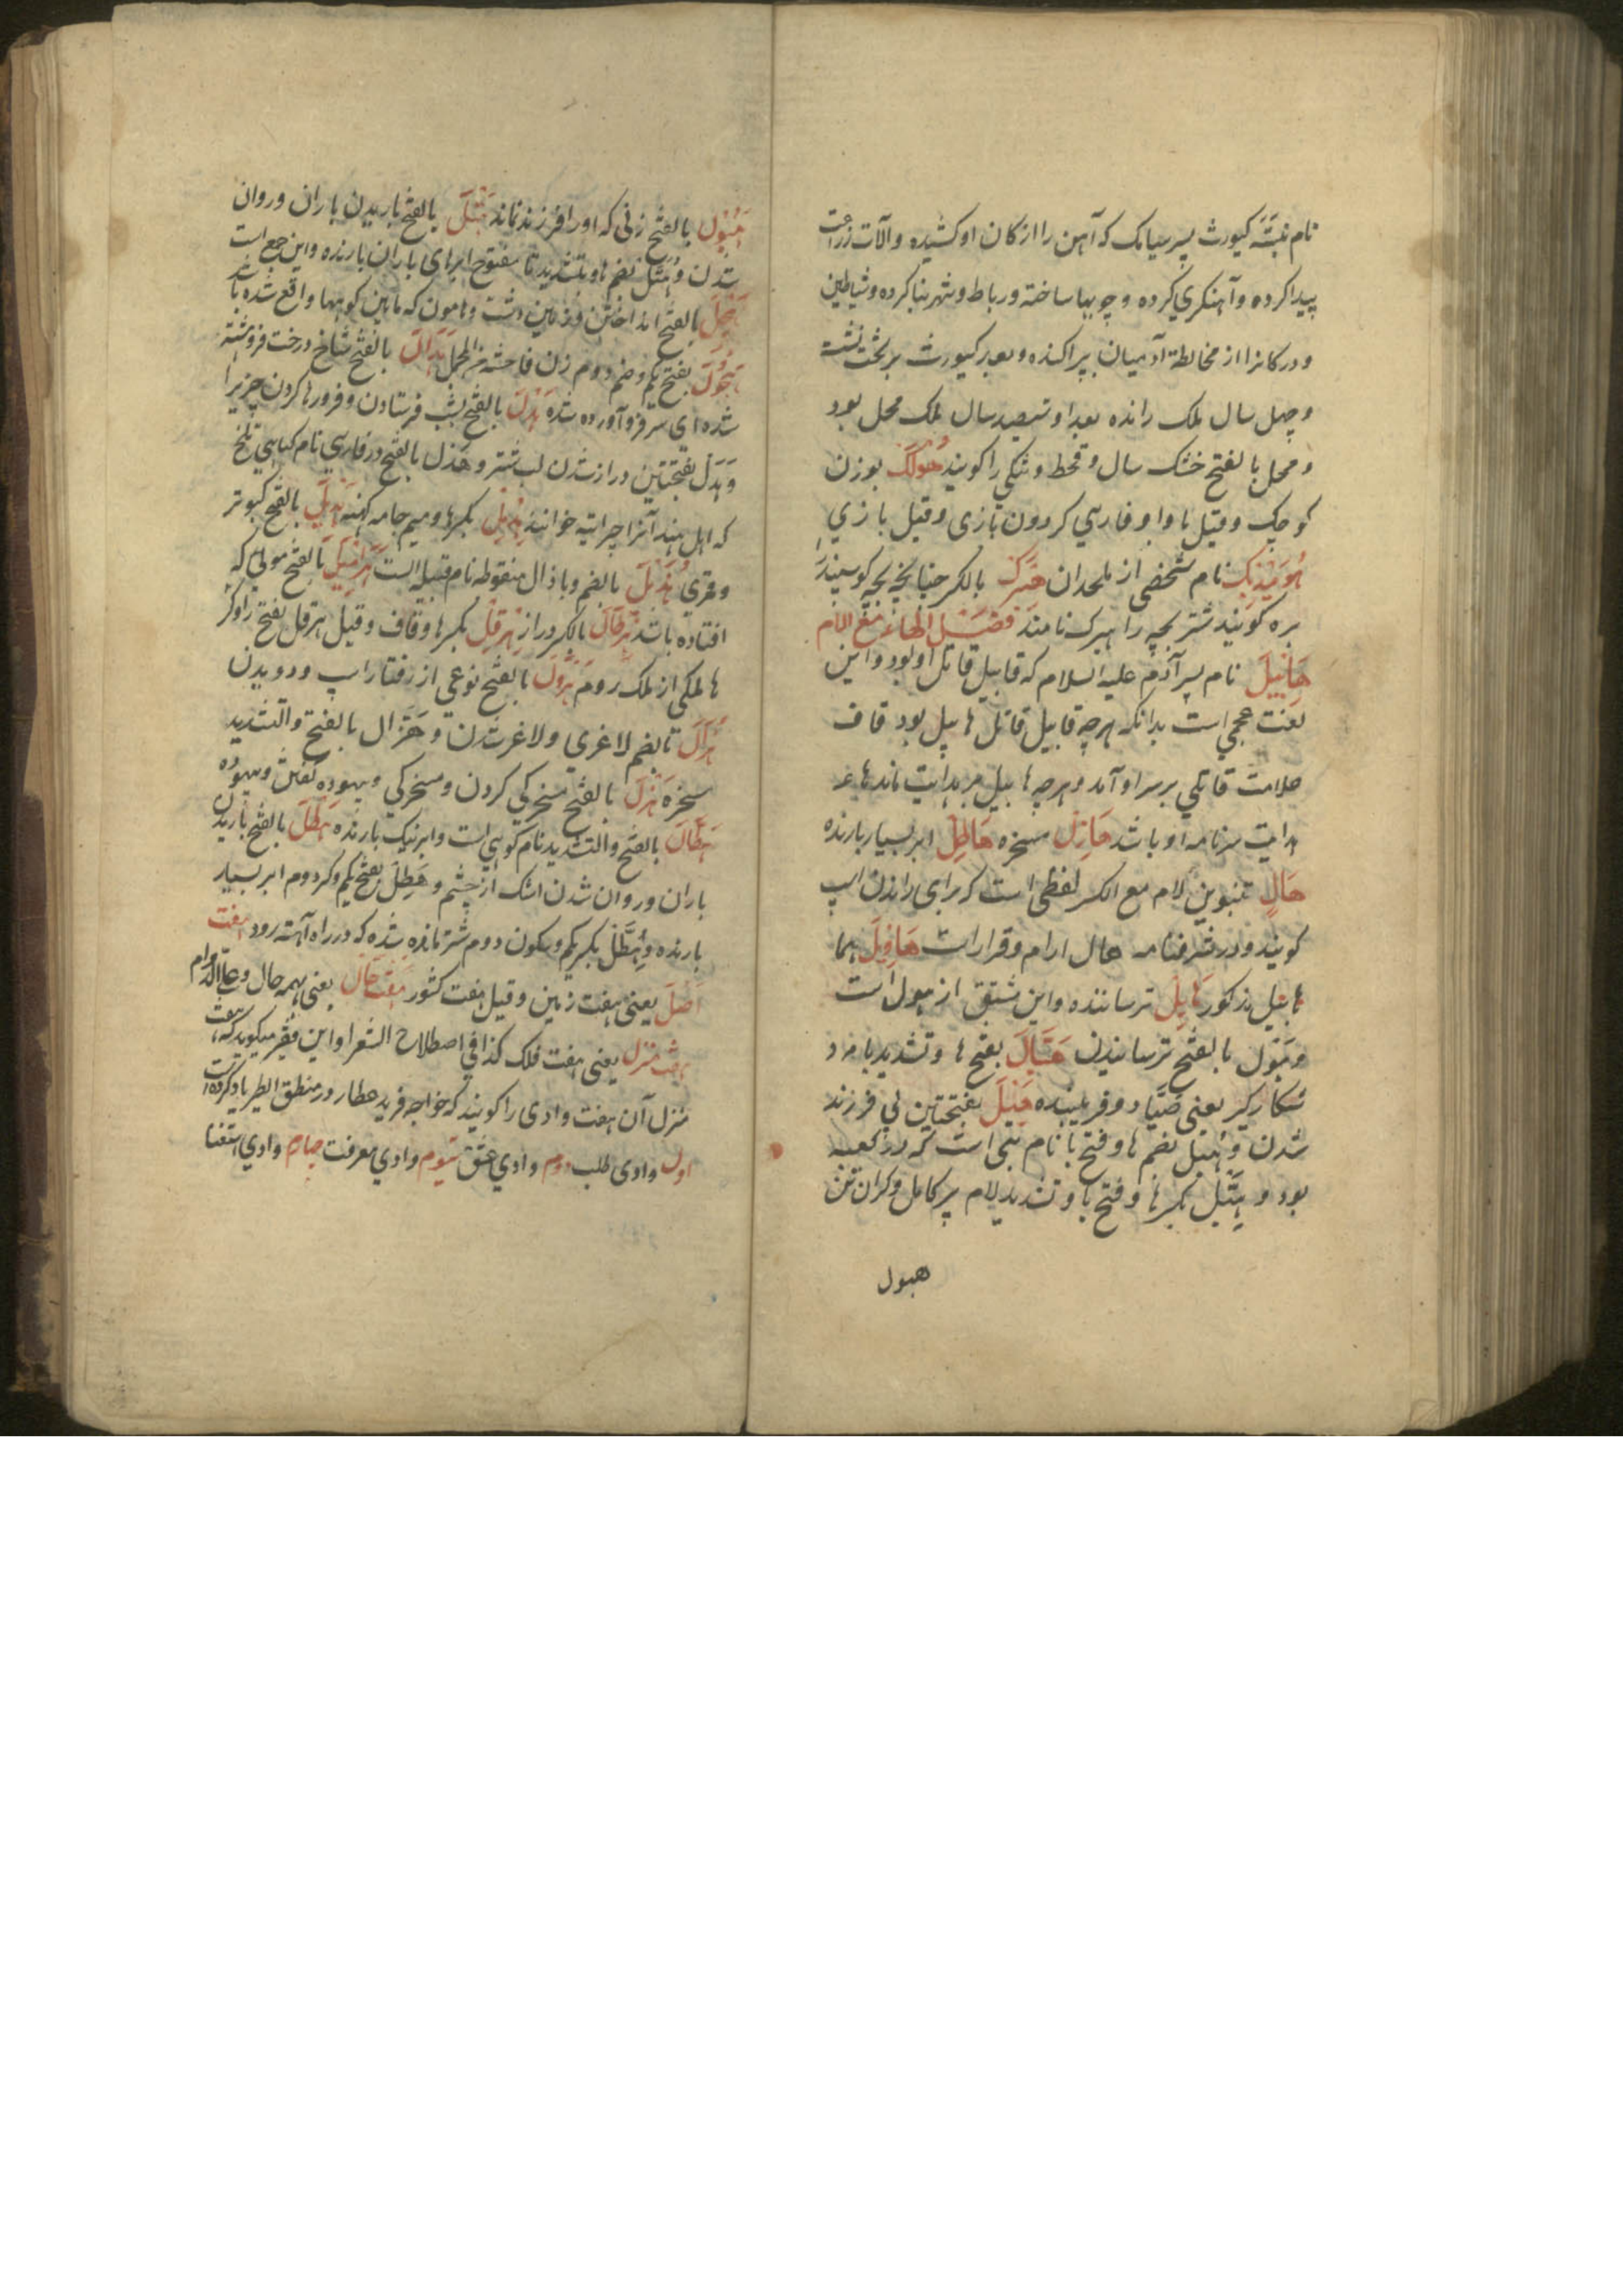 نام نبسَٔه کیورث پسر سیامک که آهن را از کان او کشیده و آلات زراعت
پیدا کرده و آهنکری کرده و جویها ساخته و رباط و شهر بنا کرده و شیاطین
و درکانرا از مخالطه آدمیان پراکنده و بعد کیورث بر تخت نشسته
و چهل سال ملک رانده بعد او سیصد سال ملک محل بود
و محل بالفتح خشک سال و قحط و تنکی را کویند هُولَک بوزن
کوچک و قیل با واو فارسی کردون بازی و قیل بازی
نام شخصی از ملحدان هبرک بالکسر چنانچه بچه کوسپند را
بره کویند شتر بچه را هبرک نامند فصَــل الهاء مع اللام
هَابیل نام پسر آدم علیه السلام که قابیل قاتل او بود و این
لغت عجمی است بدانکه هرچه قابیل قاتل هابیل بود قاف
علامت قاتلی بر سر او آمد و هرچه هابیل بر هدایت ماند هاء
هدایت سرنامه او باشد هَازِل مسخره هَاطِل ابر بسیار بارنده
هَالٍ بتنوین لام مع الکسر لفظی است که برای راندن اسپ
کویند و در شرفنامه هال ارام و قرار است هَافِیل هما
هابیل مذکور هَایِل ترساننده و این مشتق از هول است
و هَبول بالفتح ترسانیدن هَبَّال بفتح ها و تشدید با مرد
شکارکیر یعنی صیّاد و فریبنده هَبَل بفتحتین بی فرزند
شدن و هُبَل بضم ها و فتح با نام بتی است که در کعبه
بود و هِبَلّ بکسر ها و فتح با و تشدید لام پیر کامل و کران تن
هبول
هَبُول بالفتح زنی که اورا فرزند نماند هَتْل بالفتح باریدن باران و روان
شدن و هُتَّل بضم ها و تشدید تا مفتوح ابرهای باران بارنده و این جمع است
هَجْل بالفتح انداختن و زمین دشت و هامون که مابین کوهها واقع شده باشد
هَجُول بفتح یکم و ضم دوم زن فاحشه من المجمل هَدَال بالفتح شاخ درخت فروهشته
شده ای سر فرو آورده شده هَدْل بالفتح بشیب فرستادن و فرو رها کردن چیزیرا
و هَدَل بفتحتین دراز شدن لب شتر و هَذل بالفتح در فارسی نام کیاهی تلخ
که اهل هند آنرا چرایته خوانند هِدْمِل بکسر ها و میم جامه کهنه هَدِیل بالفتح کبوتر
و قمری هُذَیل بالضم و با ذال منقوطه نام قبیله است هَرامیل بالفتح موئی که
افتاده باشد هِرقال بالکسر دراز هِرقِل بکسر ها و قاف و قیل هرقل بفتح را و کسر
ها ملکی از ملک روم هَرْوَل بالفتح نوعی از رفتار اسپ و دویدن
هُزال بالضم لاغری و لاغر شدن و هَزّال بالفتح و التشدید
سخره هَزْل بالفتح مسخرکی کردن و مسخرکی و بیهوده کفتن و بیهوده
هَطّال بالفتح و التشدید نام کوهی است و ابر نیک بارنده هَطْل بالفتح باریدن
باران و روان شدن اشک از چشم و هَطِل بفتح یکم و کسر دوم ابر بسیار
بارنده و هِطْل بکسر یکم و سکون دوم شتر مانده شده که در راه آهسته رود هفت
اصل یعنی هفت زمین و قیل هفت کشور هفت حال یعنی همه حال و علی الدوام
هفت منزل یعنی هفت فلک کذا فی اصطلاح الشعرا و این فقیر میکوید که هفت
منزل آن هفت وادی را کویند که خواجه فرید عطار در منطق الطیر یاد کرده است
اول وادی طلب دوم وادی عشق سیوم وادی معرفت چهارم وادی استغنا